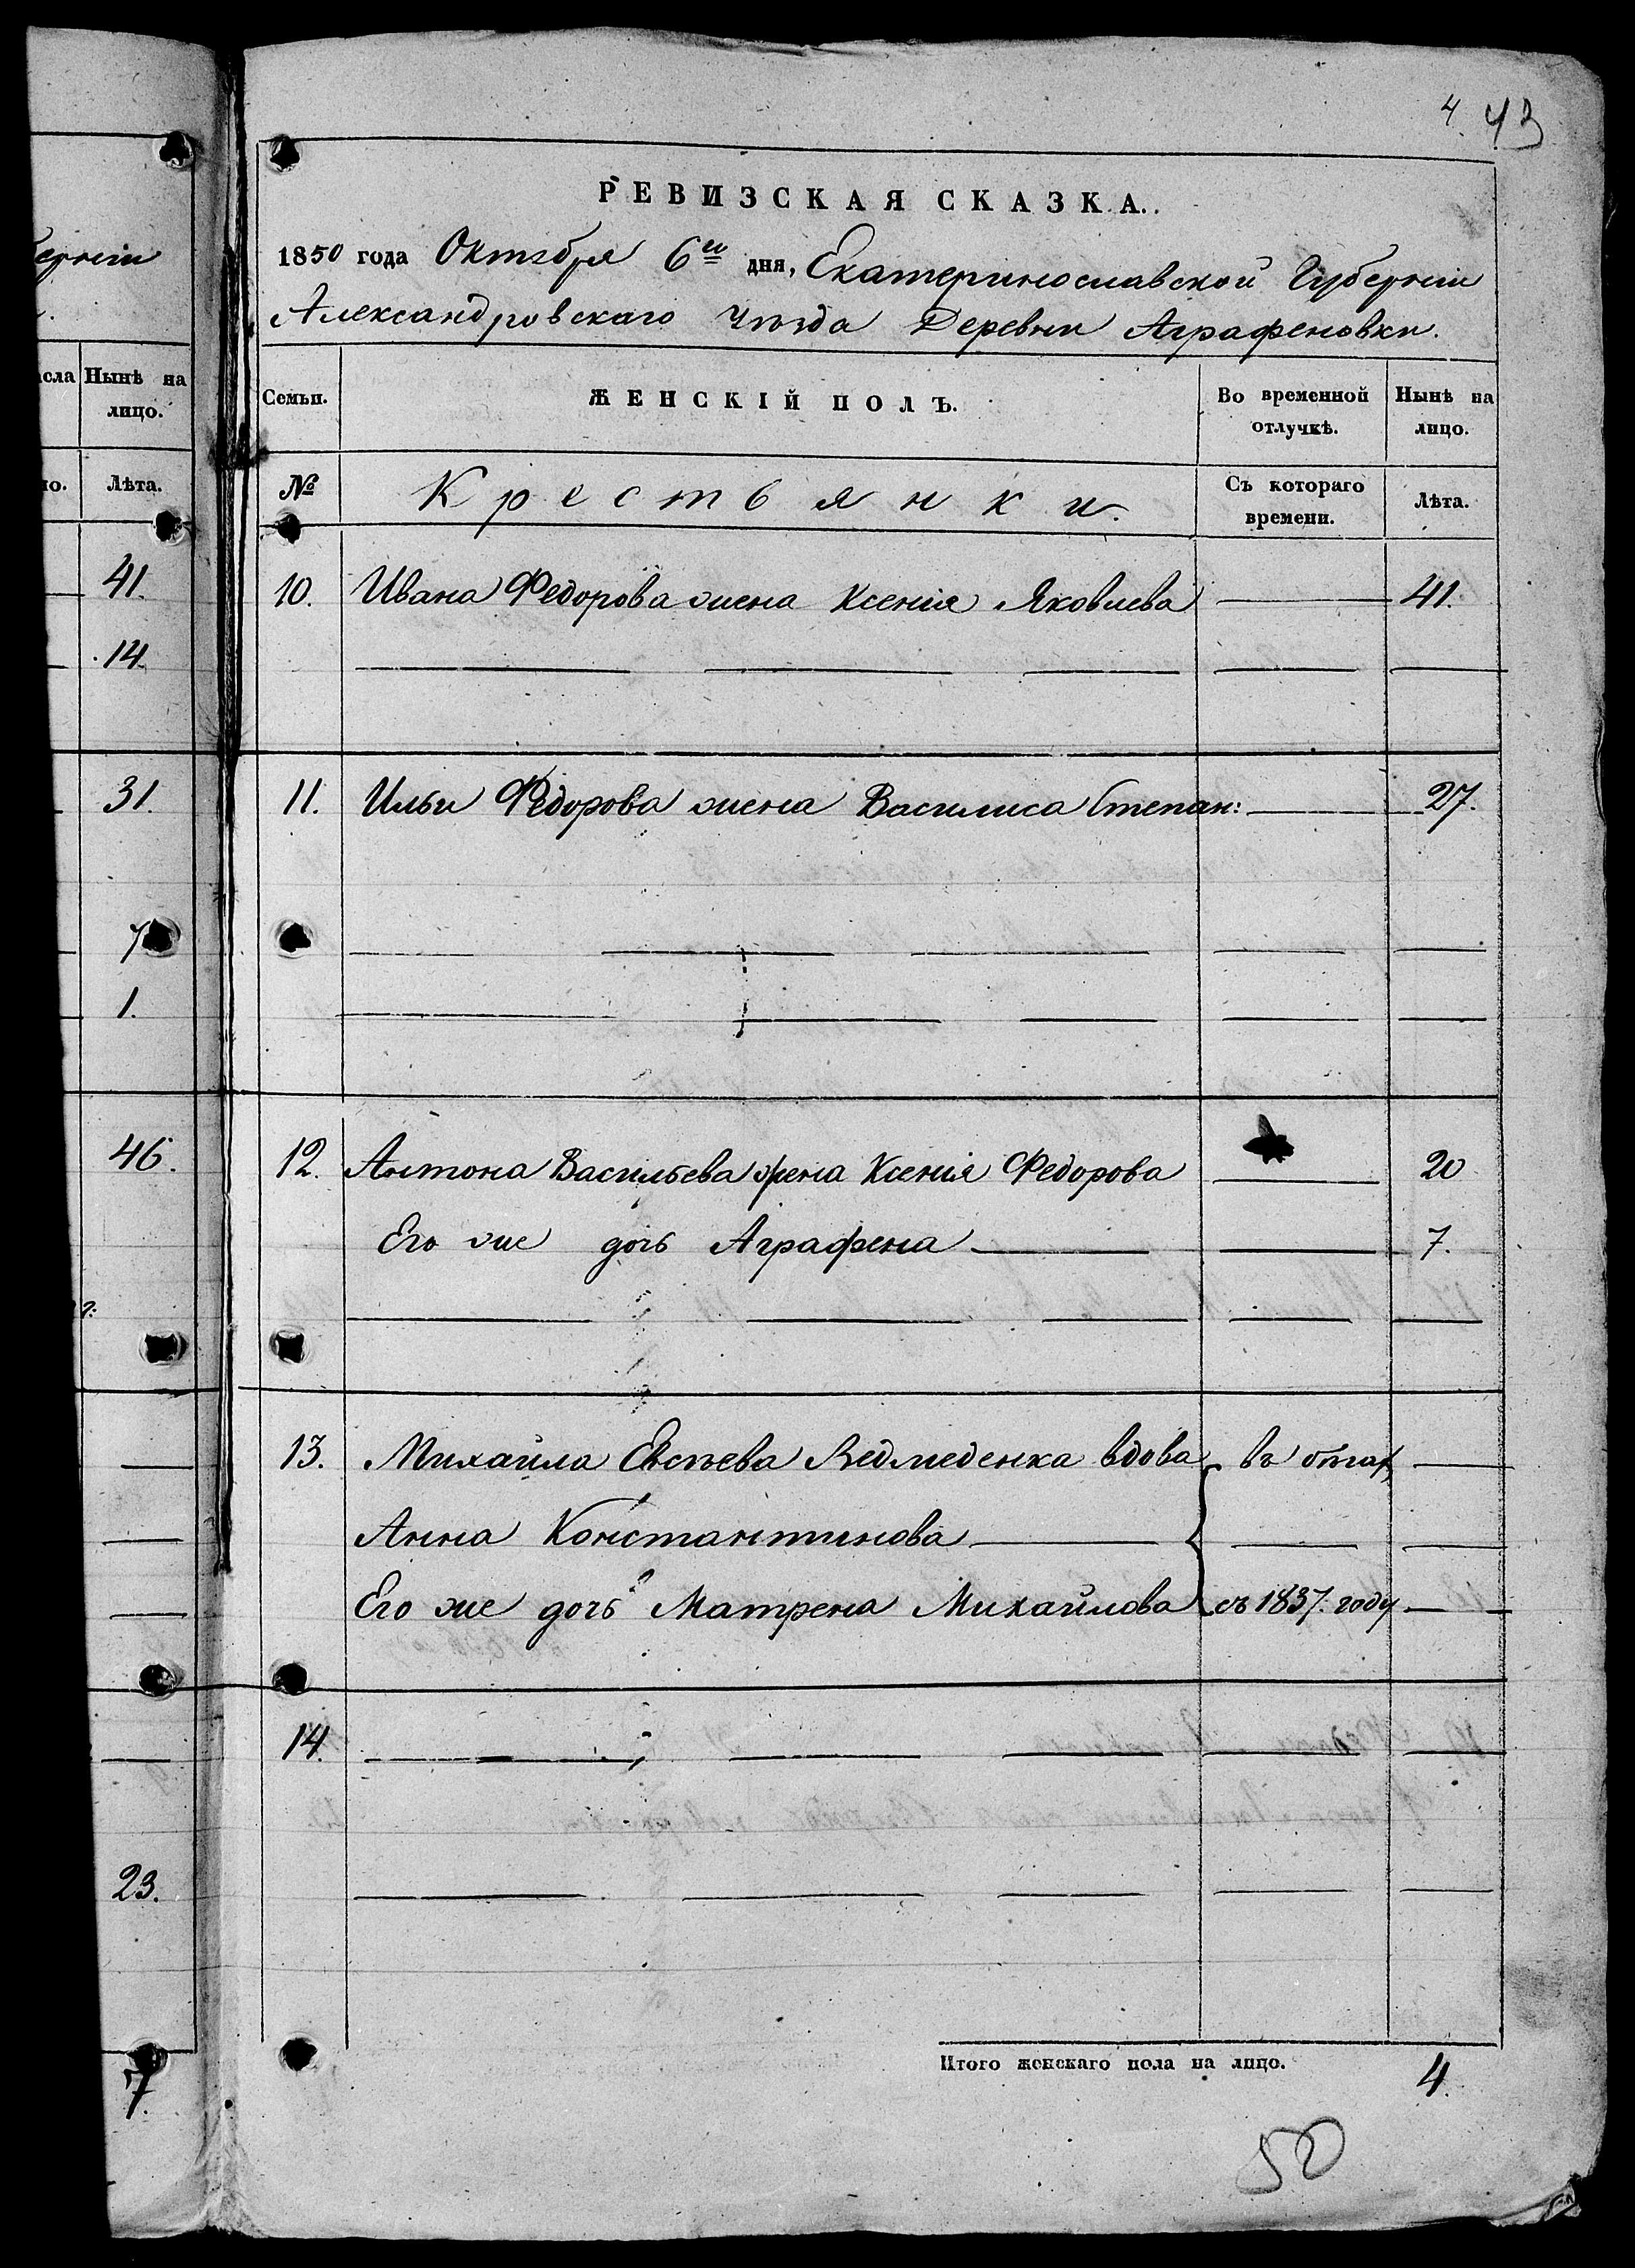 4. 43
РЕВИЗСКАЯ СКАЗКА.
1850 года Октября 6го дня, Екатеринославской Губерніи
Александровскаго Уѣзда Деревни Аграфеновки.
Семьи.
ЖЕНСКІЙ ПОЛЪ.
Во временной отлучкѣ.
Нынѣ на лицо.
№
Крестьянки.
Съ котораго времени.
Лѣта.
10. Ивана Федорова жена Ксенія Яковлева 41.
11. Ильи Федорова жена Василиса Степан: 27.
12. Антона Васильева жена Ксенія Федорова 20
Его же дочь Аграфена 7.
13. Михайла Евсѣева Ведмеденка вдова въ бѣгах
Анна Константинова
Его же дочь Матрена Михайлова съ 1837. году
14.
Итого женскаго пола на лицо. 4.
50
ерніи
сла
Нынѣ на лицо.
но.
Лѣта.
41.
14.
31.
7
1.
46.
23.
7.